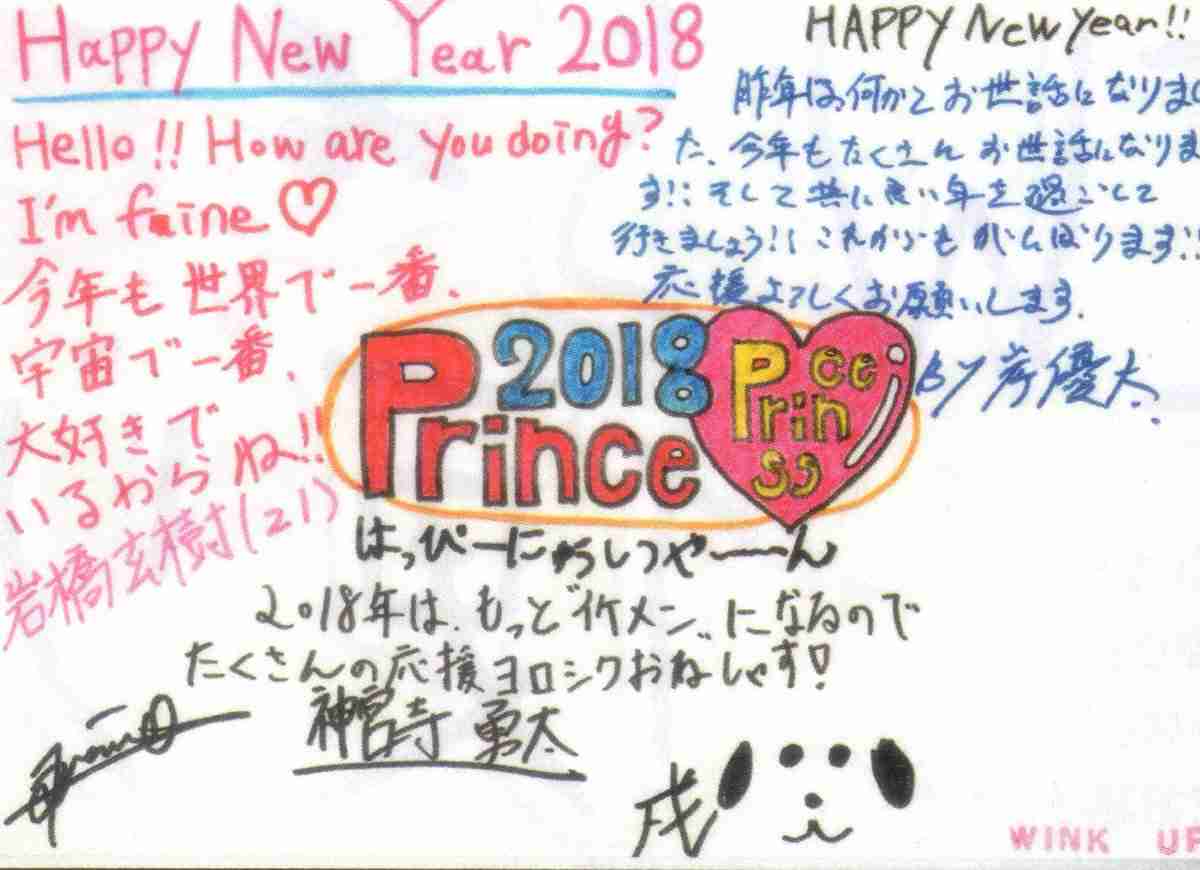 Happy New Year 2018
Hello!! How are you doing?
I'm faine♡
今年も世界で一番、
宇宙で一番、
大好きで
いるからね!!
岩橋玄樹(21)
HAPPY New Year!!
昨年は何かとお世話になりまし
た、今年もたくさんお世話になりま
す!!そして共に良い年を過ごして
行きましょう!!これからもがんばります!!
応援よろしくお願いします.
by 岸優太
2018
Prince
Prin
ce
ss
はっぴーにゅういつやーーん
2018年は、もっど"イケメン"になるので
たくさんの応援ヨロシクおねしゃす!
神宮寺 勇太
戌
WINK UP